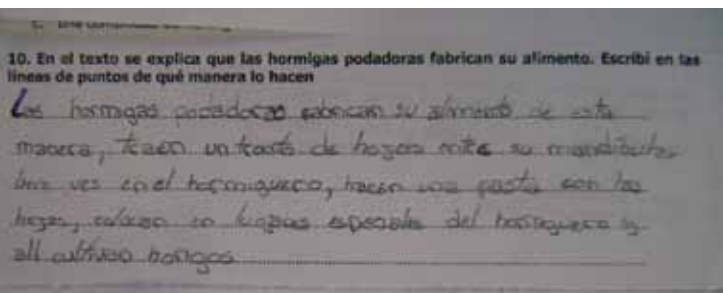 10. En el texto se explica que las hormigas podadoras fabrican su alimento. Escribí en las
líneas de puntos de qué manera lo hacen
Las hormigas podadoras fabrican su alimento de esta
manera, traen un de hojas su
una ves en el hormiguero, hacen una pasta con las
hojas, colocan en lugares especiales del hormiguero y
all cultivan hongos